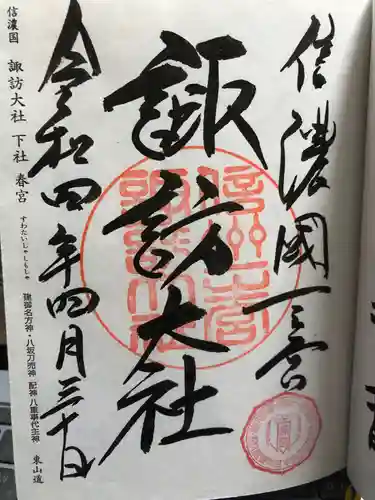 信濃國一之宮
諏訪大社
令和四年四月三十日
信濃国 諏訪大社 下社 春宮
すわたいしゃしもしゃ
建御名方神・八坂刀売神 配神 八重事代主神
東山道